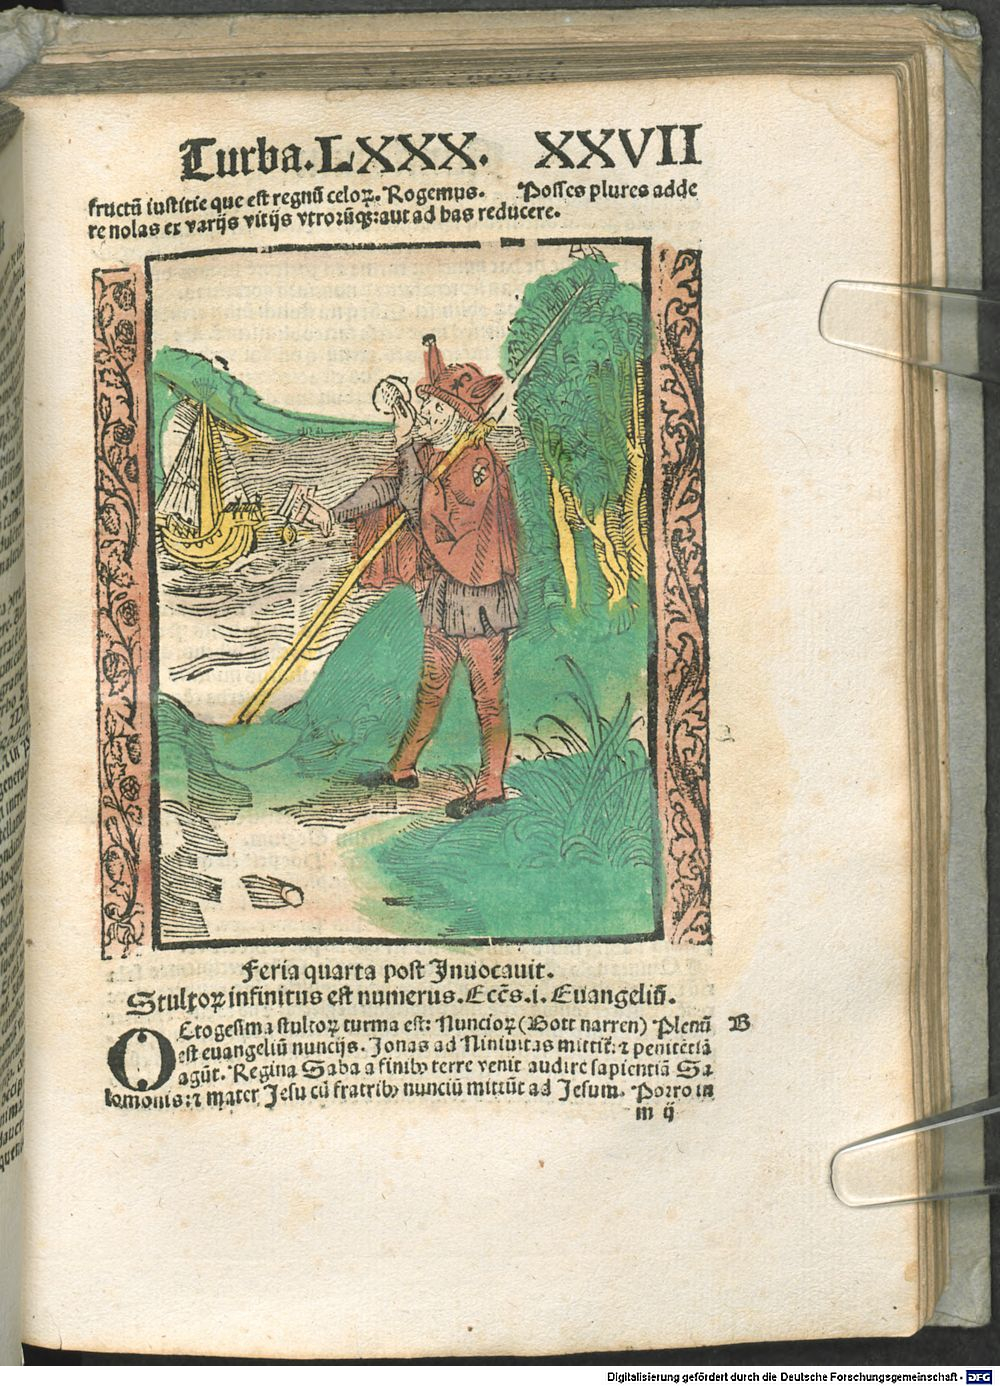 Turba.LXXX. XXVII
fructū iustitie que est regnū celoꝝ. Rogemus. Posses plures adde
re nolas ex varijs vitijs vtrorūqꝫ: aut ad has reducere.
Feria quarta post Inuocauit.
Stultoꝝ infinitus est numerus. Eccēs. i. Euangeliū.
OCtogesima stultoꝝ turma est: Nuncioꝝ (Bott narren) Plenū B
est euangeliū nuncijs. Jonas ad Niniuitas mittit̃: ⁊ penitētiā
agūt. Regina Saba a finibꝰ terre venit audire sapientiā Sa
lomonis: ⁊ mater Jesu cū fratribꝰ nunciū mittūt ad Jesum. Porro in
m ij
Digitalisierung gefördert durch die Deutsche Forschungsgemeinschaft - DFG